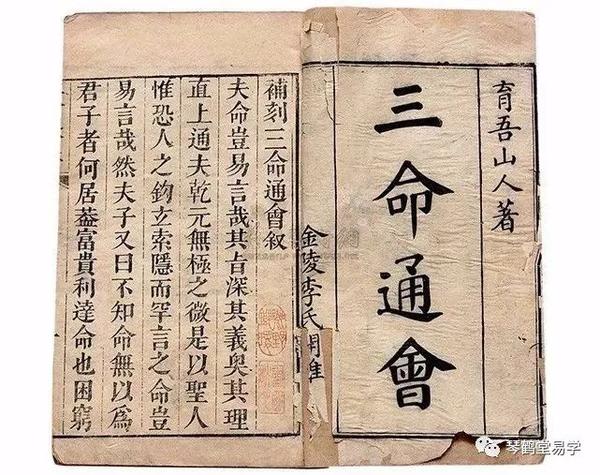 育吾山人著
三命通會
金陵李氏開雕
補刻三命通會叙
夫命豈易言哉其旨深其義奥其理
直上通夫乾元無極之微是以聖人
惟恐人之鈎玄索隱而罕言之命豈
易言哉然夫子又曰不知命無以爲
君子者何居葢富貴利達命也困窮
琴鹤堂易学